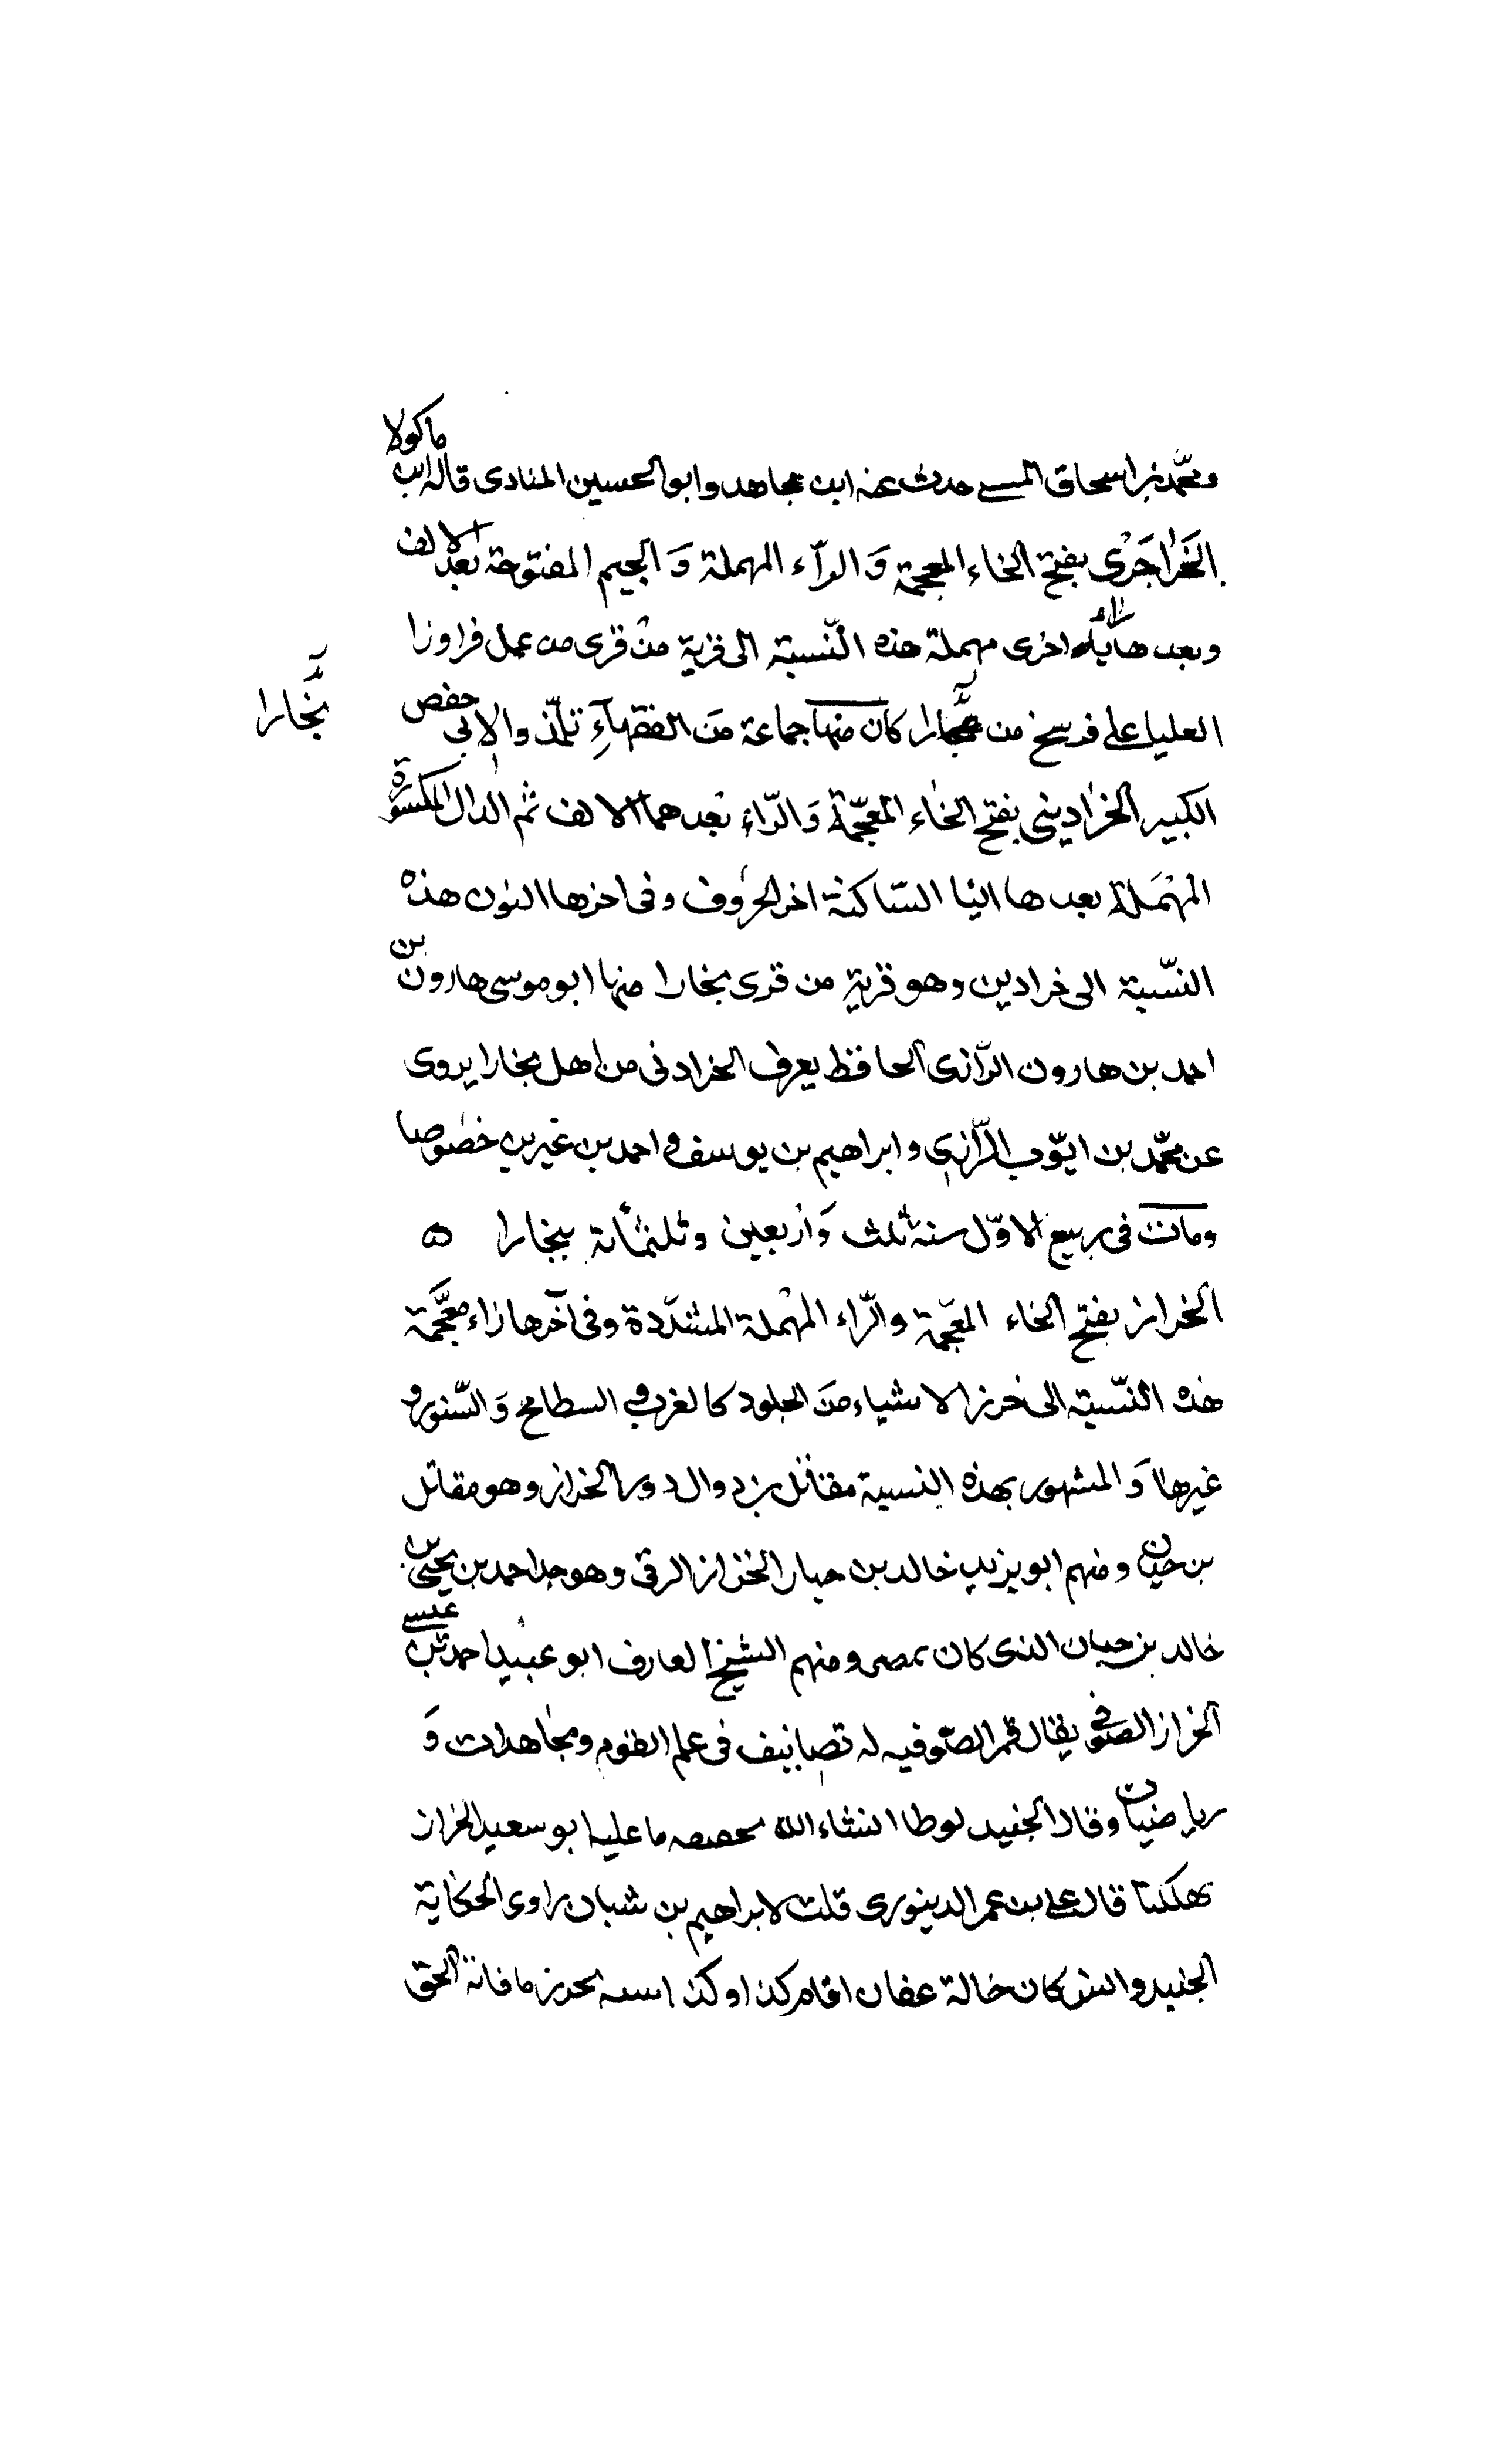 ومحمّد بن اسحاق المسى حدث عنه ابن مجاهد وابو الحسين المنادى قاله ابن ماكولا
الخَرٰاجَرْى بفتح الخاء المعجمة وَ الرآء المهملة وَ الجيم المفتوحة بعد الالف
وبعدها راء اخرى مهملة هذه النّسبة الى قرية منْ قرى من عمل فراوزا
العليا على فرسخ من بخارا كان منها جماعة مَن الفقهآءِ تلمّذوا لابى حفص
بُخارا
الكبير الخرٰادينى بفتح الخاء المعجّمة وَالرّاءِ بَعدهما الالف ثم الدال المكسورة
المهْمَلة بعدها اليا السّاكنة اخر الحروف وفى اخرها النون هذه
النسّبة الى خرادين وهو قرية من قرى بخارا منها ابو موسى هارون بن
احمد بن هارون الرّازى الحافظ يعرف الخرادنى من اهل بخارا يروى
عن محمّد بن ايّوب الرّازى و ابراهيم بن يوسف و احمد بن غيرين خصوصا
ومات فى ربيع الاوّل سنة ثلث وَاربعين وثلثمأئة ببخارا ه
الخراز بفتح الخاء المعّجمة والرّاء المهْملة المشدّدة وفى آخرها زاء معَّجمة
هذه النسّبة الى خرز الاشياء منَ الجلود كالغرب و السطايح وَالسّنور و
غيرها وَ المشهور بهذه النسبة مقاتل بن دوال دور الخراز وهو مقاتل
بن حيان ومنهم ابو يزيد خالد بن حيار الخزاز الرقى وهو جد احمد بن يحيى بن
خالد بن حبان الذى كان بمصر ومنهم الشيخ العارف ابو عبيد احمد بن عيسى
الخراز الصوفى يقال قمر الصّوفيه له تصانيف فى علم القوم ومجاهدات وَ
رياضيات وقال الجنيد لوطا النشاء الله بحقيقه ما عليه ابو سعيد الخراز
هلكنا قال على بن عمر الدينورى قلت لابراهيم بن شبان راوى الحكاية
الجنيد وانش كان خالة عفان اقام كذا وكذا اسنه يحرز ما فاتة الحق